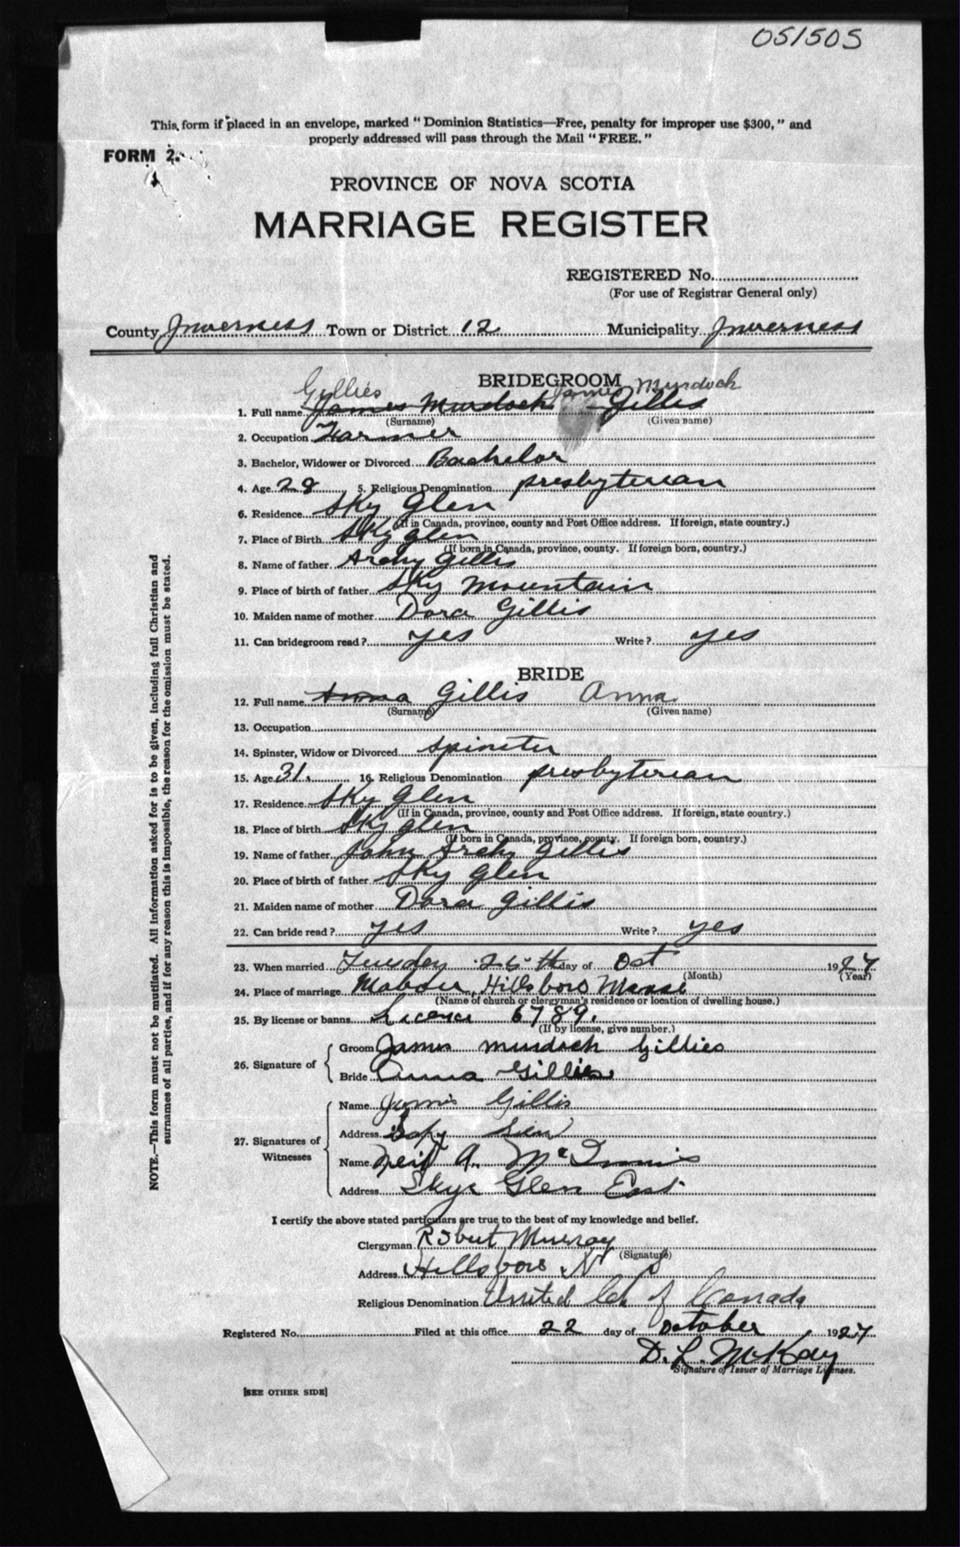 051505
This form if placed in an envelope, marked "Dominion Statistics—Free, penalty for improper use $300," and
properly addressed will pass through the Mail "FREE."
FORM 2.
PROVINCE OF NOVA SCOTIA
MARRIAGE REGISTER
REGISTERED No.
(For use of Registrar General only)
County Inverness Town or District 12 Municipality Inverness
BRIDEGROOM
Gillies James Murdoch
1. Full name James Murdock Gillis
(Surname) (Given name)
2. Occupation Farmer
3. Bachelor, Widower or Divorced Bachelor
4. Age 28 5. Religious Denomination presbyterian
6. Residence Sky Glen
(If in Canada, province, county and Post Office address. If foreign, state country.)
7. Place of Birth Sky glen
(If born in Canada, province, county. If foreign born, country.)
8. Name of father Archy Gillis
9. Place of birth of father Sky Mountain
10. Maiden name of mother Dora Gillis
11. Can bridegroom read? yes Write? yes
BRIDE
12. Full name Anna Gillis Anna
(Surname) (Given name)
13. Occupation
14. Spinster, Widow or Divorced Spinster
15. Age 31. 16. Religious Denomination presbyterian
17. Residence Sky Glen
(If in Canada, province, county and Post Office address. If foreign, state country.)
18. Place of birth Sky glen
(If born in Canada, province, county. If foreign born, country.)
19. Name of father John Archy Gillis
20. Place of birth of father Sky Glen
21. Maiden name of mother Dora Gillis
22. Can bride read? yes Write? yes
23. When married Tuesday 25th day of Oct 1927
(Month) (Year)
24. Place of marriage Mabou, Hillsboro Manse
(Name of church or clergyman's residence or location of dwelling house.)
25. By license or banns Licence 6789.
(If by license, give number.)
26. Signature of
Groom James Murdoch Gillies
Bride Anna Gillies
27. Signatures of Witnesses
Name Gillis
Address
Name Neil A. McInnis
Address Skye Glen East
I certify the above stated particulars are true to the best of my knowledge and belief.
Clergyman Robert Murray
(Signature)
Address Hillsboro N S
Religious Denomination United Ch of Canada
Registered No. Filed at this office 22 day of October 1927
D. L. McKay
Signature of Issuer of Marriage Licenses.
[SEE OTHER SIDE]
NOTE.—This form must not be mutilated. All information asked for is to be given, including full Christian and
surnames of all parties, and if for any reason this is impossible, the reason for the omission must be stated.